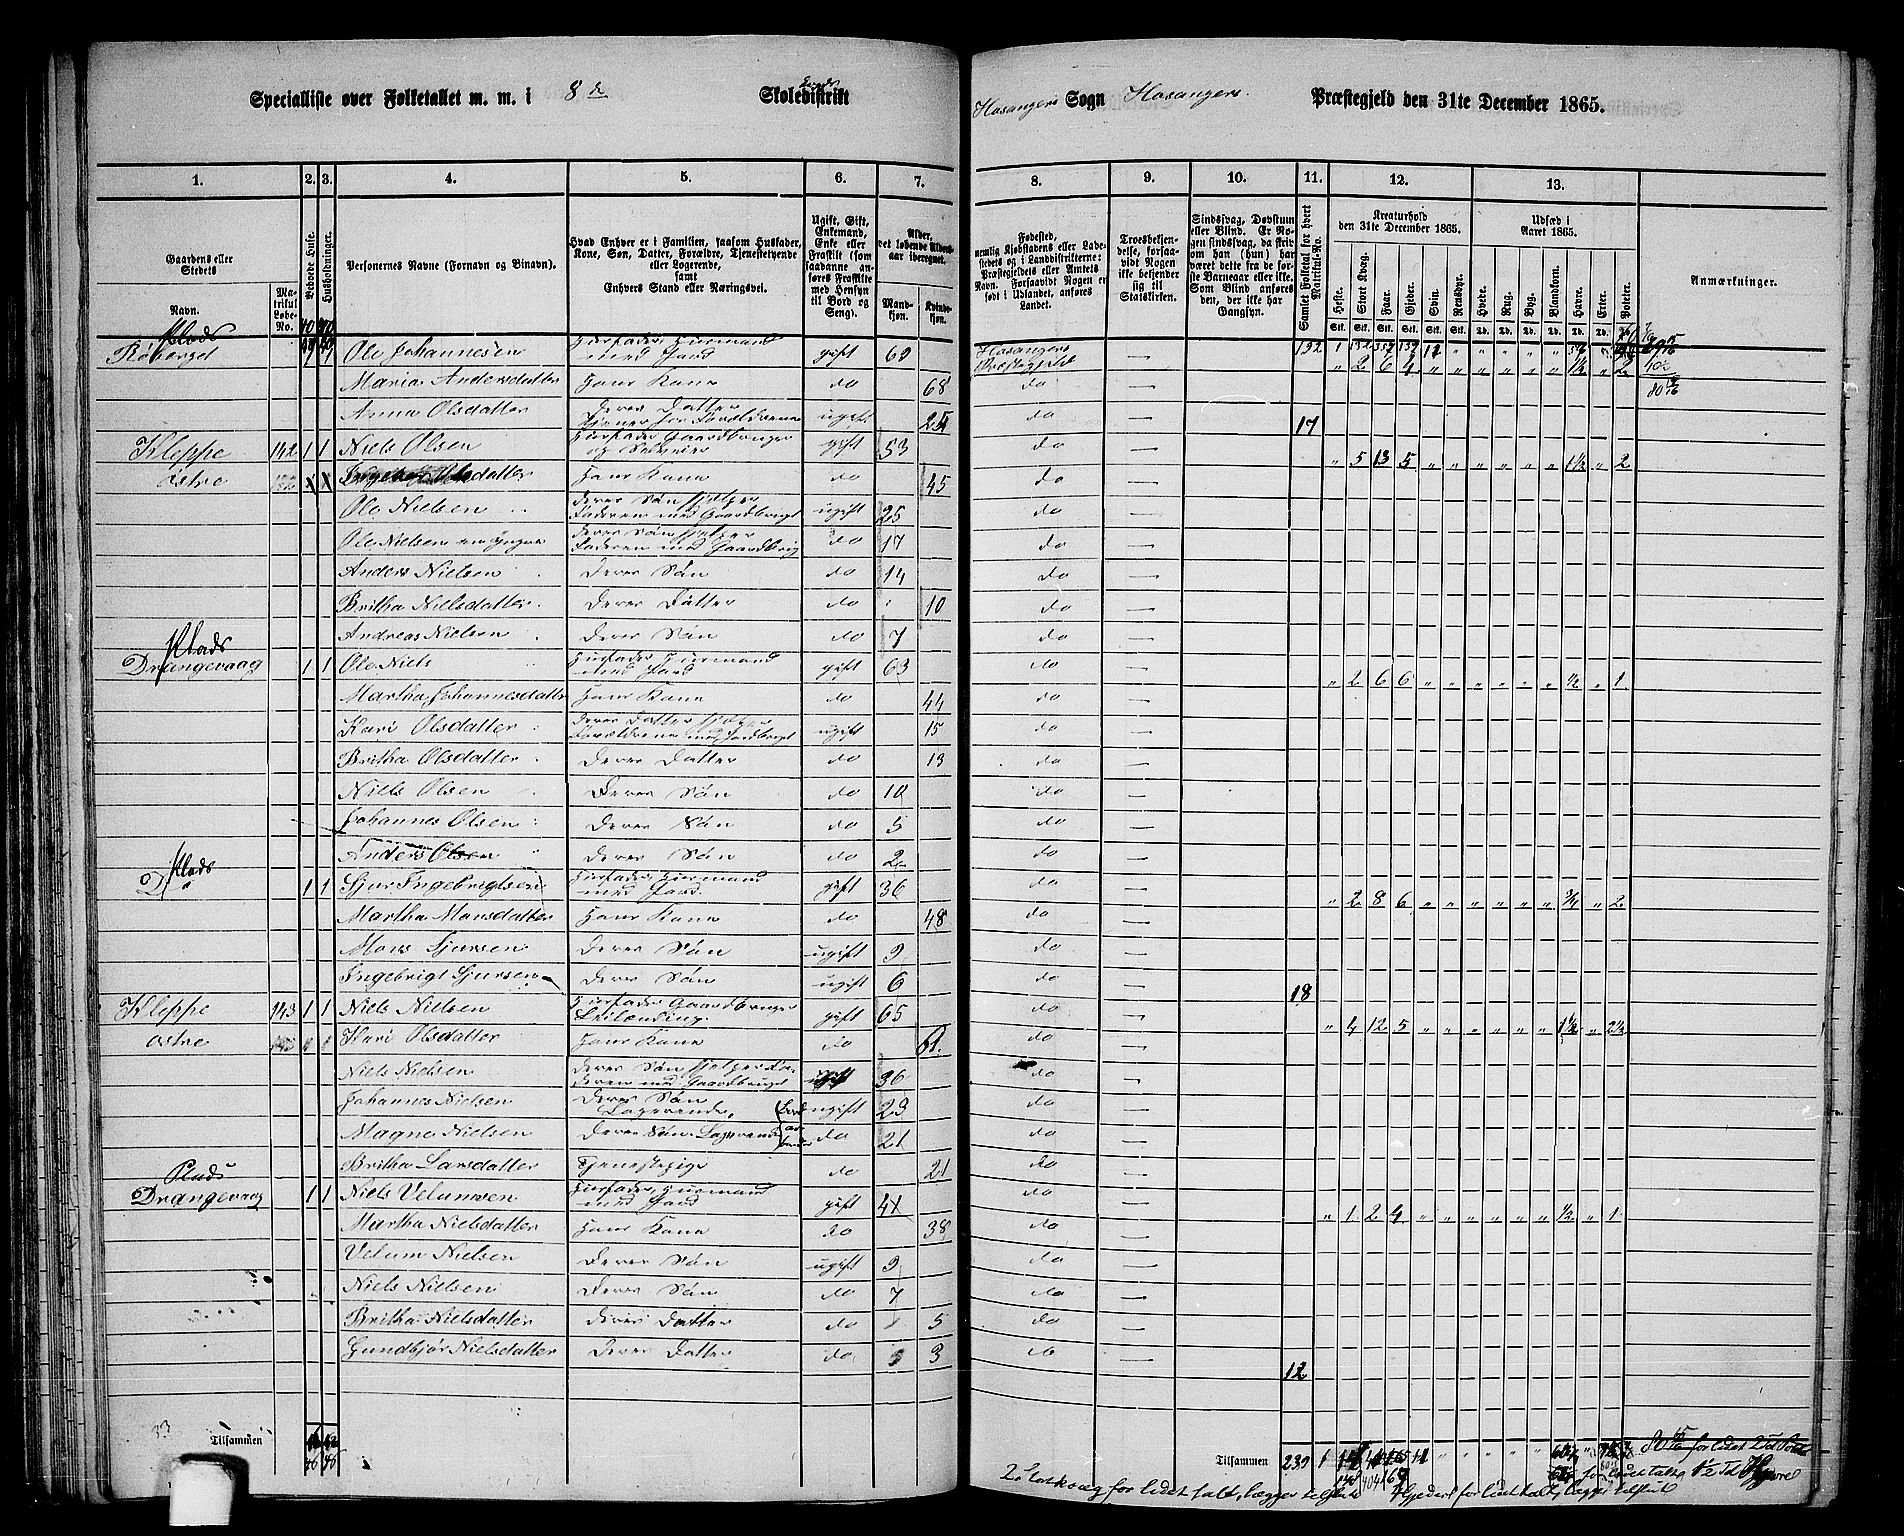 Specialliste over Folketallet m. m. i 8de Skoledistrikt
Hosangers Sogn Hosangers Præstegjeld den 31te December 1865.
1. 2. 3. 4. 5. 6. 7. 8. 9. 10. 11. 12. 13.
Gaardens eller Stedets
Navn. Matrikul Løbe-No.
Beboede Huse.
Husholdninger.
Personernes Navne (Fornavn og Binavn).
Hvad Enhver er i Familien, saasom Husfader, Kone, Søn, Datter, Forældre, Tjenestetyende eller Logerende, samt Enhvers Stand eller Næringsvei.
Ugift, Gift, Enkemand, Enke eller Fraskilt (som saadanne anføres Fraskilte med Hensyn til Bord og Seng).
Alder, det løbende Aldersaar iberegnet.
Mandkjøn. Kvindekjøn.
Fødested, nemlig Kjøbstadens eller Ladestedets og i Landdistrikterne: Præstegjeldets eller Amtets Navn. Forsaavidt Nogen er født i Udlandet, anføres Landet.
Troesbekjendelse, forsaavidt Nogen ikke bekjender sig til Statskirken.
Sindssvag, Døvstum eller Blind. Er Nogen sindssvag, da skrives om han (hun) har været dette fra de første Barneaar eller ikke. Som Blind anføres den, der ikke har Gangsyn.
Samlet Folketal for hvert Matrikul-No.
Kreaturhold den 31te December 1865.
Heste. Stort Kvæg. Faar. Gjeder. Svin. Rensdyr.
Udsæd i Aaret 1865.
Hvede. Rug. Byg. Blandkorn. Havre. Erter. Poteter.
Anmærkninger.
Plads
Røberget Ole Johannesen Husfader, Huusmand med Jord gift 69 Hosangers Præstegjeld 192 " 2 6 4 " " " " " " 1½ " 2
Maria Andersdatter Hans Kone do 68 do
Anna Olsdatter Deres Datter tjener for Forældrene ugift 25 do 17
Kleppe 142 1 1 Niels Olsen Husfader Gaardbruger og Selveier gift 53 do " 5 13 5 " " " " " " 1½ " 2
østre Hans Kone do 45 do
Ole Nielsen Deres Søn hjelper Faderen med Gaardbruget ugift 25 do
Ole Nielsen en yngre Deres Søn hjelper Faderen med Gaardbrug do 17 do
Anders Nielsen Deres Søn do 14 do
Britha Nielsdatter Deres Datter do 10 do
Andreas Nielsen Deres Søn do 7 do
Plads
Drangevaag 1 1 Ole Niels Husfader, Huusmand med Jord gift 63 do " 2 6 6 " " " " " " ½ " 1
Martha Johannesdatter Hans Kone do 44 do
Kari Olsdatter Deres Datter hjelper Forældrene med Jordbruget ugift 15 do
Britha Olsdatter Deres Datter do 13 do
Niels Olsen Deres Søn do 10 do
Johannes Olsen Deres Søn do 5 do
Anders Olsen Deres Søn do 2 do
Plads
do 1 1 Sjur Ingebrigtsen Husfader Huusmand med Jord. gift 36 do " 2 8 6 " " " " " " ¾ " 2
Martha Monsdatter Hans Kone do 48 do
Mons Sjursen Deres Søn ugift 9 do
Ingebrigt Sjursen Deres Søn ugift 6 do 18
Kleppe 143 1 1 Niels Nielsen Husfader Gaardbruger Leilænding. gift 65 do " 4 12 5 " " " " " " 1½ " 2½
østre Kari Olsdatter Hans Kone do 61 do
Niels Nielsen Deres Søn hjelper Faderen med Gaardbruget ugift 36 do
Johannes Nielsen Deres Søn Logerende, ugift 23 do
Magne Nielsen Deres Søn Logerende do 21 do
Britha Larsdatter Tjenestepige do 21 do
Plads
Drangevaag 1 1 Niels Velumsen Husfader, Huusmand med Jord gift 41 do " 1 2 4 " " " " " " ½ " 1
Martha Nielsdatter Hans Kone do 38 do
Velum Nielsen Deres Søn ugift 9 do
Niels Nielsen Deres Søn do 7 do
Britha Nielsdatter Deres Datter do 5 do
Gundbjør Nielsdatter Deres Datter do 3 do 12
33 Tilsammen
Tilsammen 239 1